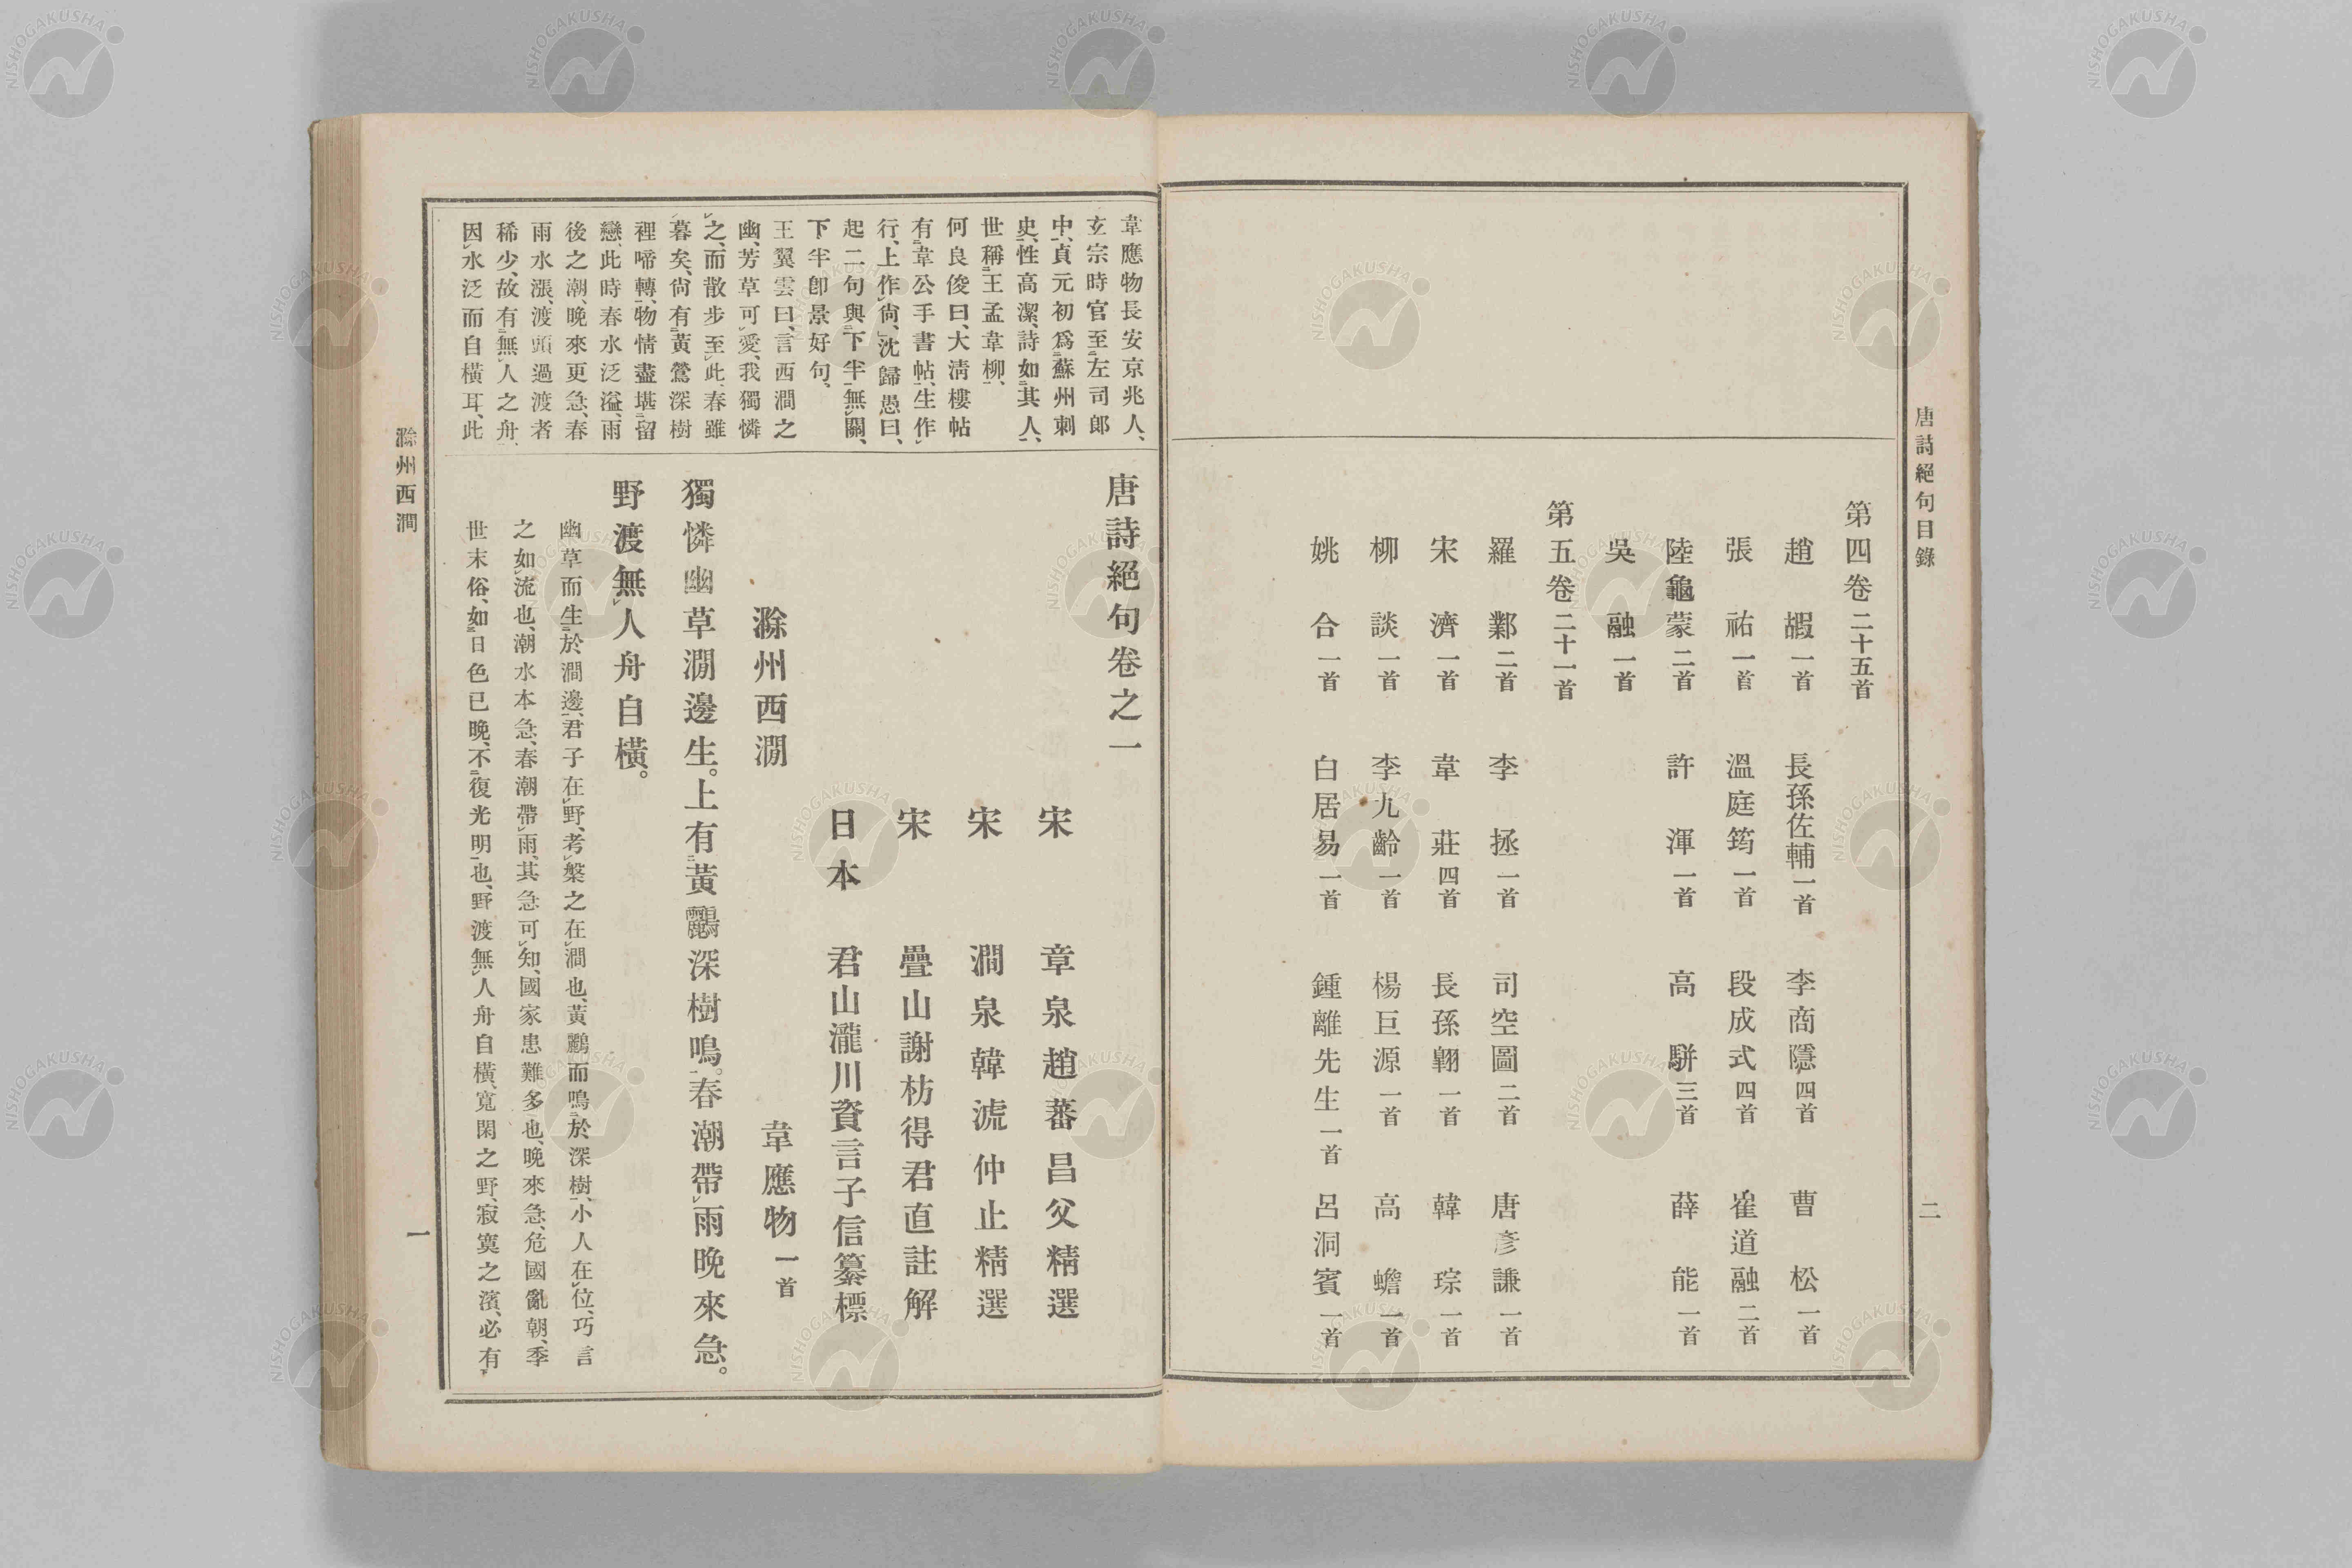 唐詩絕句目錄
二
第四卷 二十五首
趙嘏 一首 長孫佐輔 一首 李商隱 四首 曹松 一首
張祜 一首 溫庭筠 一首 段成式 四首 崔道融 二首
陸龜蒙 二首 許渾 一首 高駢 三首 薛能 一首
吳融 一首
第五卷 二十一首
羅鄴 二首 李拯 一首 司空圖 二首 唐彥謙 一首
宋濟 一首 韋莊 四首 長孫翱 一首 韓琮 一首
柳談 一首 李九齡 一首 楊巨源 一首 高蟾 一首
姚合 一首 白居易 一首 鍾離先生 一首 呂洞賓 一首
韋應物長安京兆人、
玄宗時官至左司郎
中、貞元初爲蘇州刺
史、性高潔、詩如其人、
世稱王孟韋柳、
何良俊曰、大淸樓帖
有韋公手書帖、生作
行、上作尙、沈歸愚曰、
起二句與下半無關、
下半卽景好句、
王翼雲曰、言西澗之
幽、芳草可愛、我獨憐
之、而散步至此、春雖
暮矣、尙有黃鶯深樹
裡啼轉、物情盡堪留
戀、此時春水泛溢、雨
後之潮、晚來更急、春
雨水漲、渡頭過渡者
稀少、故有無人之舟、
因水泛而自橫耳、此
唐詩絕句卷之一
宋 章泉趙蕃昌父精選
宋 澗泉韓淲仲止精選
宋 疊山謝枋得君直註解
日本 君山瀧川資言子信纂標
滁州西澗 韋應物 一首
獨憐幽草澗邊生。上有黃鸝深樹鳴。春潮帶雨晚來急。
野渡無人舟自橫。
幽草而生於澗邊、君子在野、考槃之在澗也、黃鸝而鳴於深樹、小人在位、巧言
之如流也、潮水本急、春潮帶雨、其急可知、國家患難多也、晚來急、危國亂朝、季
世末俗、如日色已晚、不復光明也、野渡無人舟自橫、寬閑之野、寂寞之濱、必有
滁州西澗
一
NISHOGAKUSHA